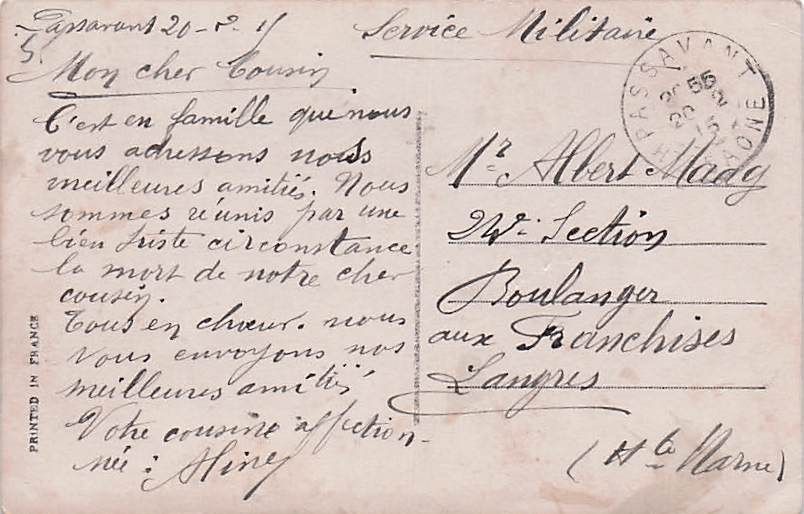 Passavant 20-2-15
Mon cher Cousin
C'est en famille que nous
vous adressons nos
meilleures amitiés. Nous
sommes réunis par une
bien triste circonstance
la mort de notre cher
cousin.
Tous en chœur. nous
vous envoyons nos
meilleures amitiés
Votre cousine affection-
née :
Service Militaire
PASSAVANT
HTE SAONE
Mr Albert Mady
Section
Boulanger
aux Franchises
Langres
(Hte Marne)
PRINTED IN FRANCE